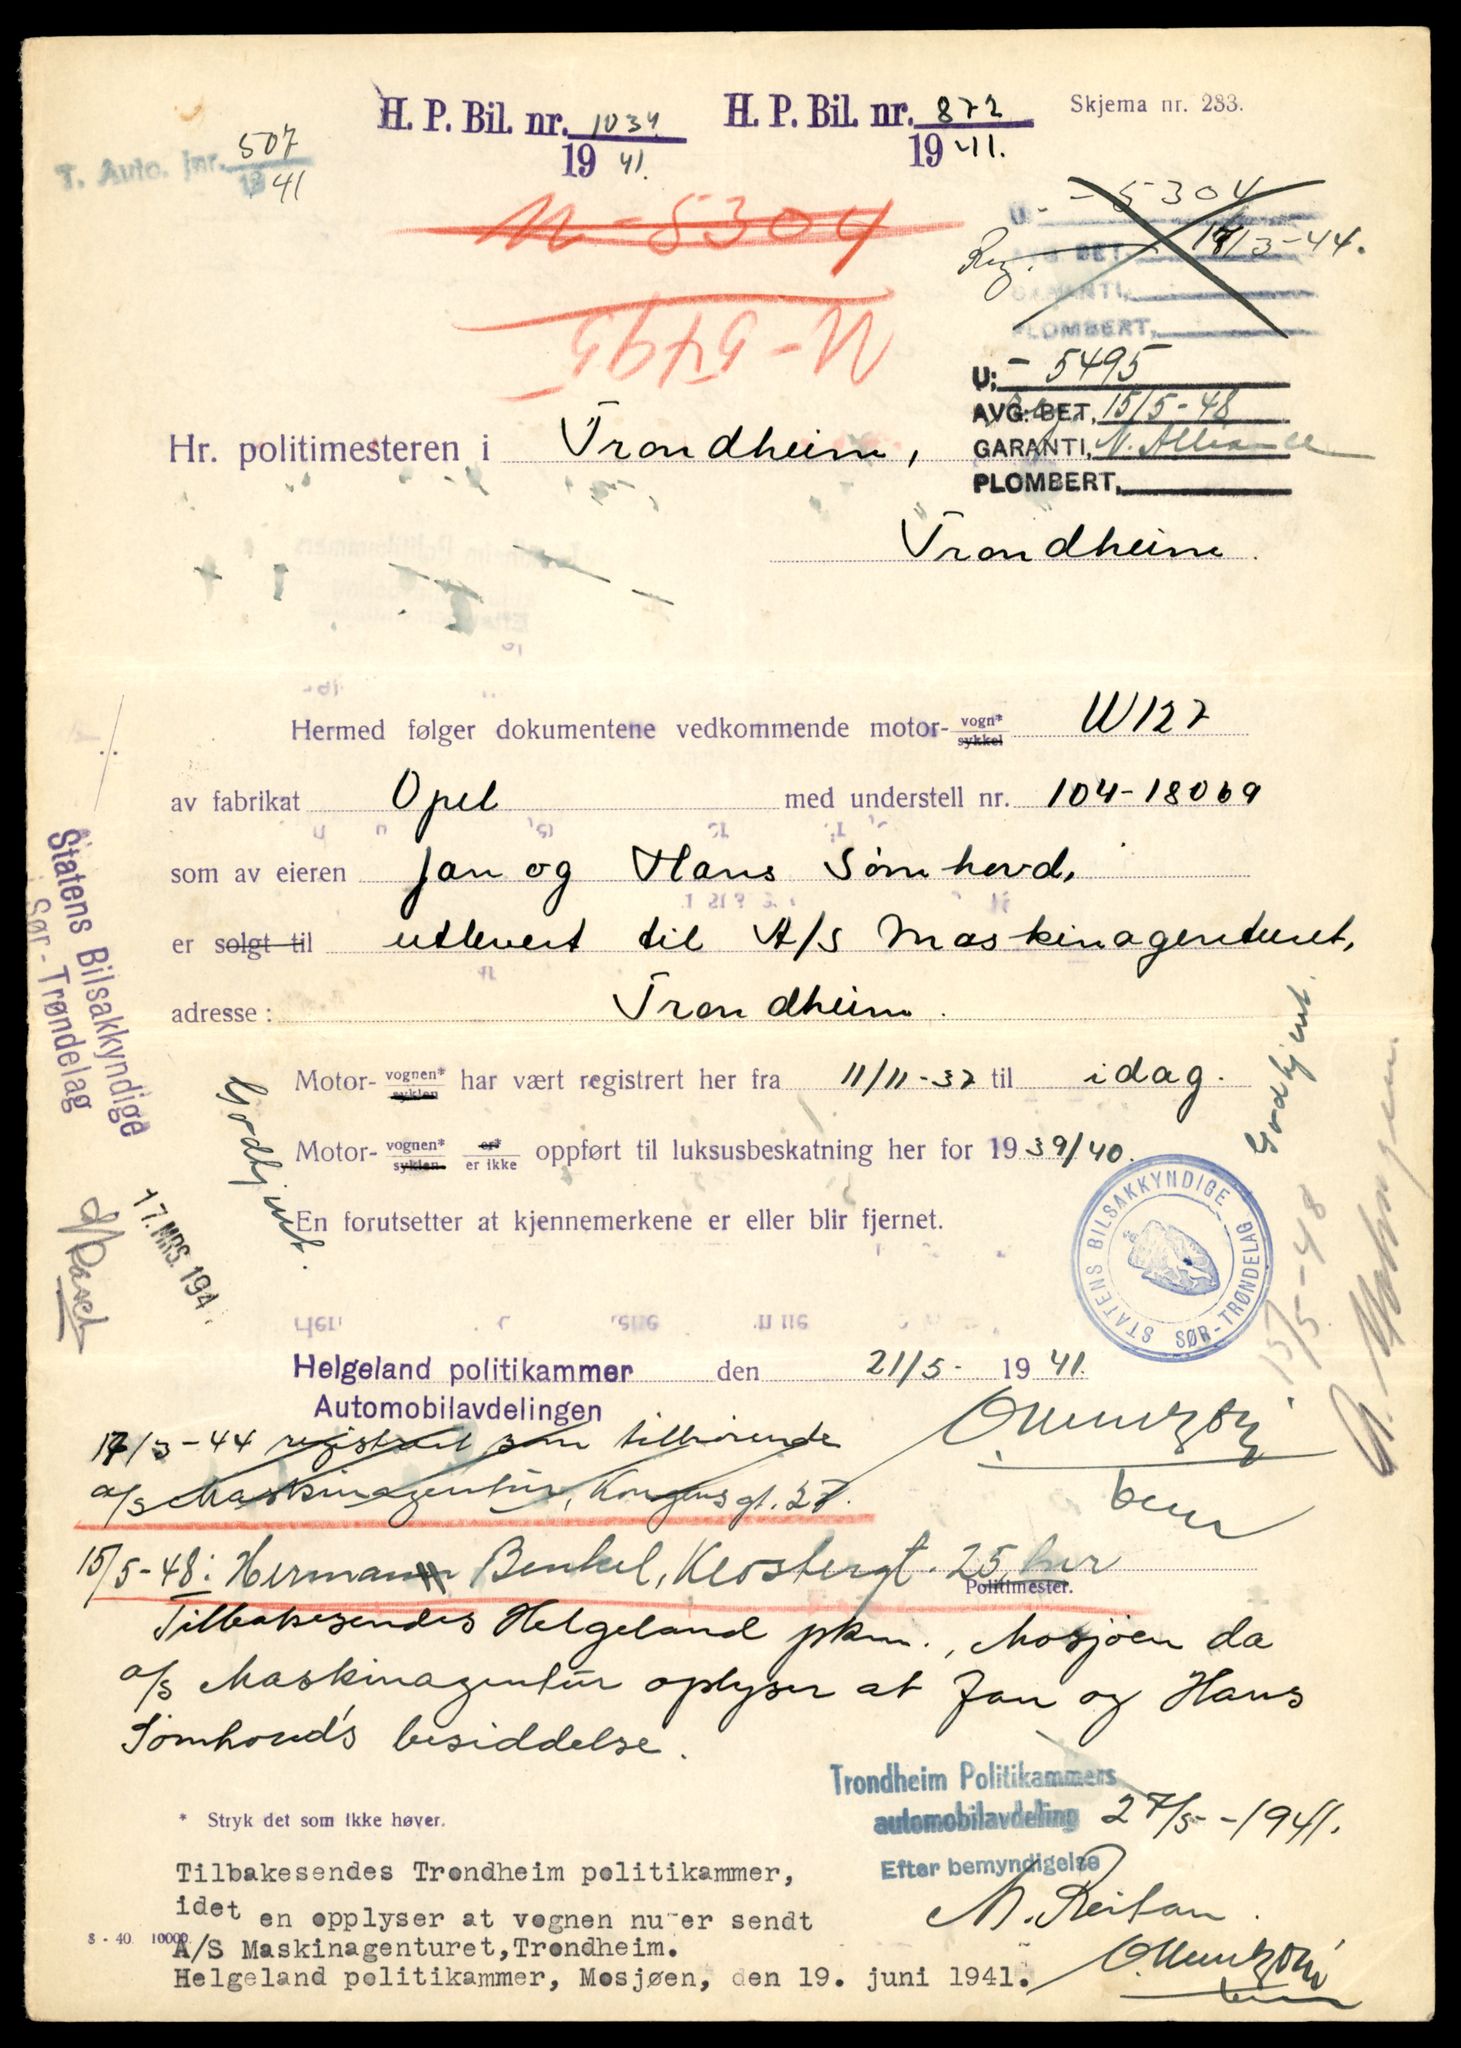 H. P. Bil. nr. 1034 H. P. Bil. nr. 872 Skjema nr. 283.
1941. 1941.
T. Auto. jnr. 507
1941
U - 5304
U: - 5304
Reg. AVG. BET. 17/3-44.
GARANTI,
PLOMBERT,
U - 5495
U: - 5495
AVG. BET, 15/5-48
GARANTI, N. Alliance
PLOMBERT,
Hr. politimesteren i Trondheim,
Trondheim.
Hermed følger dokumentene vedkommende motor- vogn* sykkel W127
av fabrikat Opel med understell nr. 104-18069
som av eieren Jan og Hans Sømhovd,
er solgt til utlevert til A/S Maskinagenturet,
adresse: Trondheim.
Motor- vognen* syklen har vært registrert her fra 11/11-37 til idag.
Motor- vognen* syklen er* er ikke oppført til luksusbeskatning her for 1939/40.
En forutsetter at kjennemerkene er eller blir fjernet.
Statens Bilsakkyndige
Sør-Trøndelag
Godkjent.
17. MRS. 194
Godkjent.
15/5-48
STATENS BILSAKKYNDIGE SØR-TRØNDELAG
Helgeland politikammer den 21/5- 1941.
Automobilavdelingen
17/3-44 registrert som tilhørende
a/s Maskinagentur, Kongensgt. 27.
15/5-48: Hermann Benkel, Klostergt. 25, her
Politimester.
Tilbakesendes Helgeland pkm., Mosjøen da
a/s Maskinagentur oplyser at Jan og Hans
Sømhovd's besiddelse.
Trondheim Politikammers
automobilavdeling 27/5-1941.
* Stryk det som ikke høver.
Efter bemyndigelse
M. Reitan.
Tilbakesendes Trondheim politikammer,
idet en opplyser at vognen nu er sendt
S - 40 10000 A/S Maskinagenturet, Trondheim.
Helgeland politikammer, Mosjøen, den 19. juni 1941.